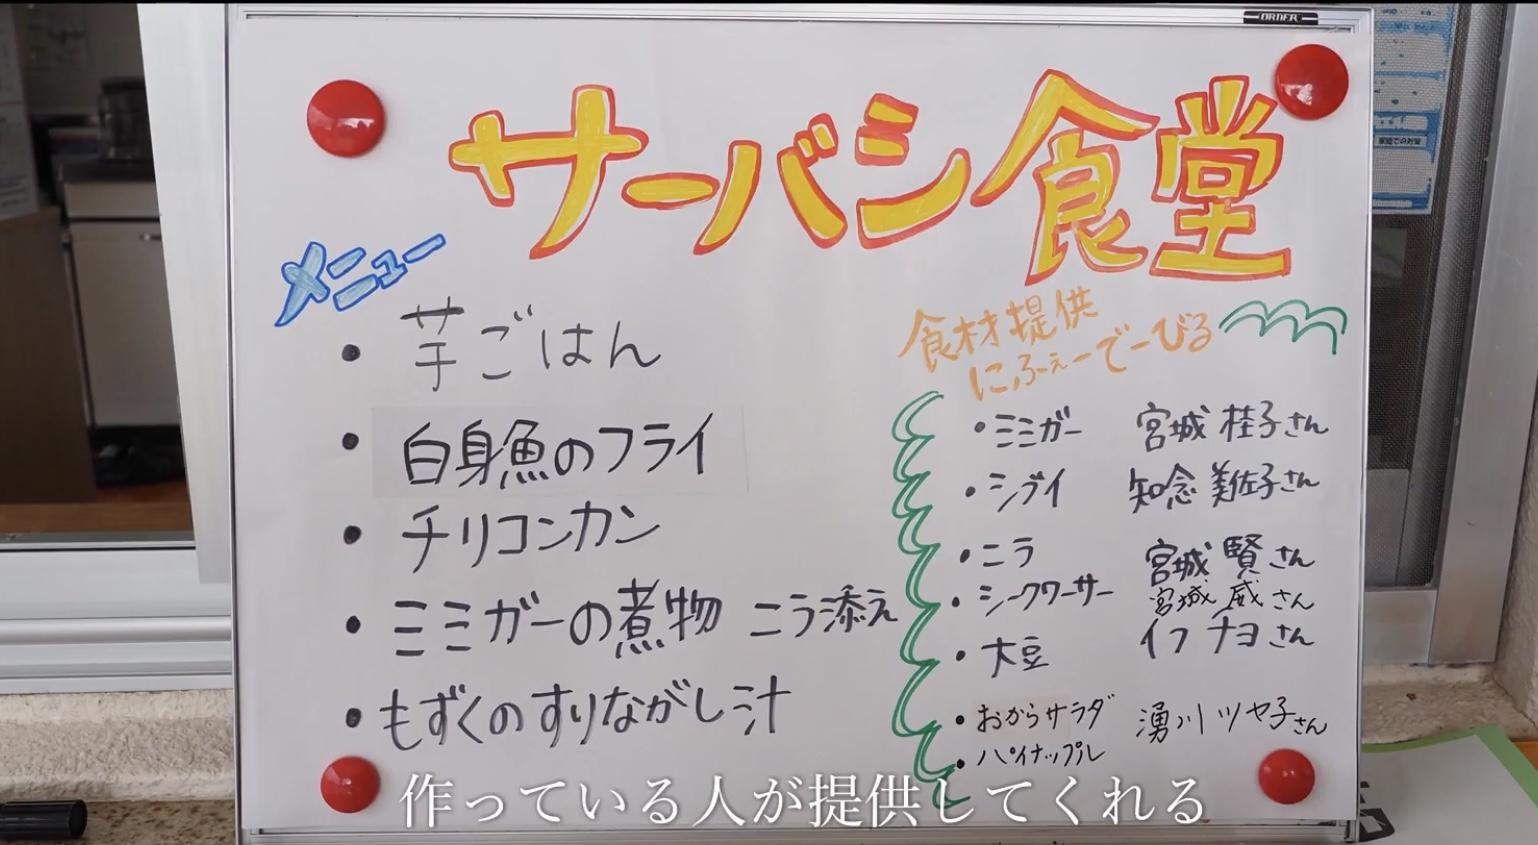 ORDER
サーバシ食堂
メニュー
・芋ごはん
・白身魚のフライ
・チリコンカン
・ミミガーの煮物 ニラ添え
・もずくのすりながし汁
食材提供
にふぇーでーびる
・ミミガー 宮城 桂子さん
・シブイ 知念 美佐子さん
・ニラ 宮城 賢さん
・シークワーサー 宮城 威さん
・大豆 イフ ナヨさん
・おからサラダ 湧川 ツヤ子さん
・パイナップル
作っている人が提供してくれる